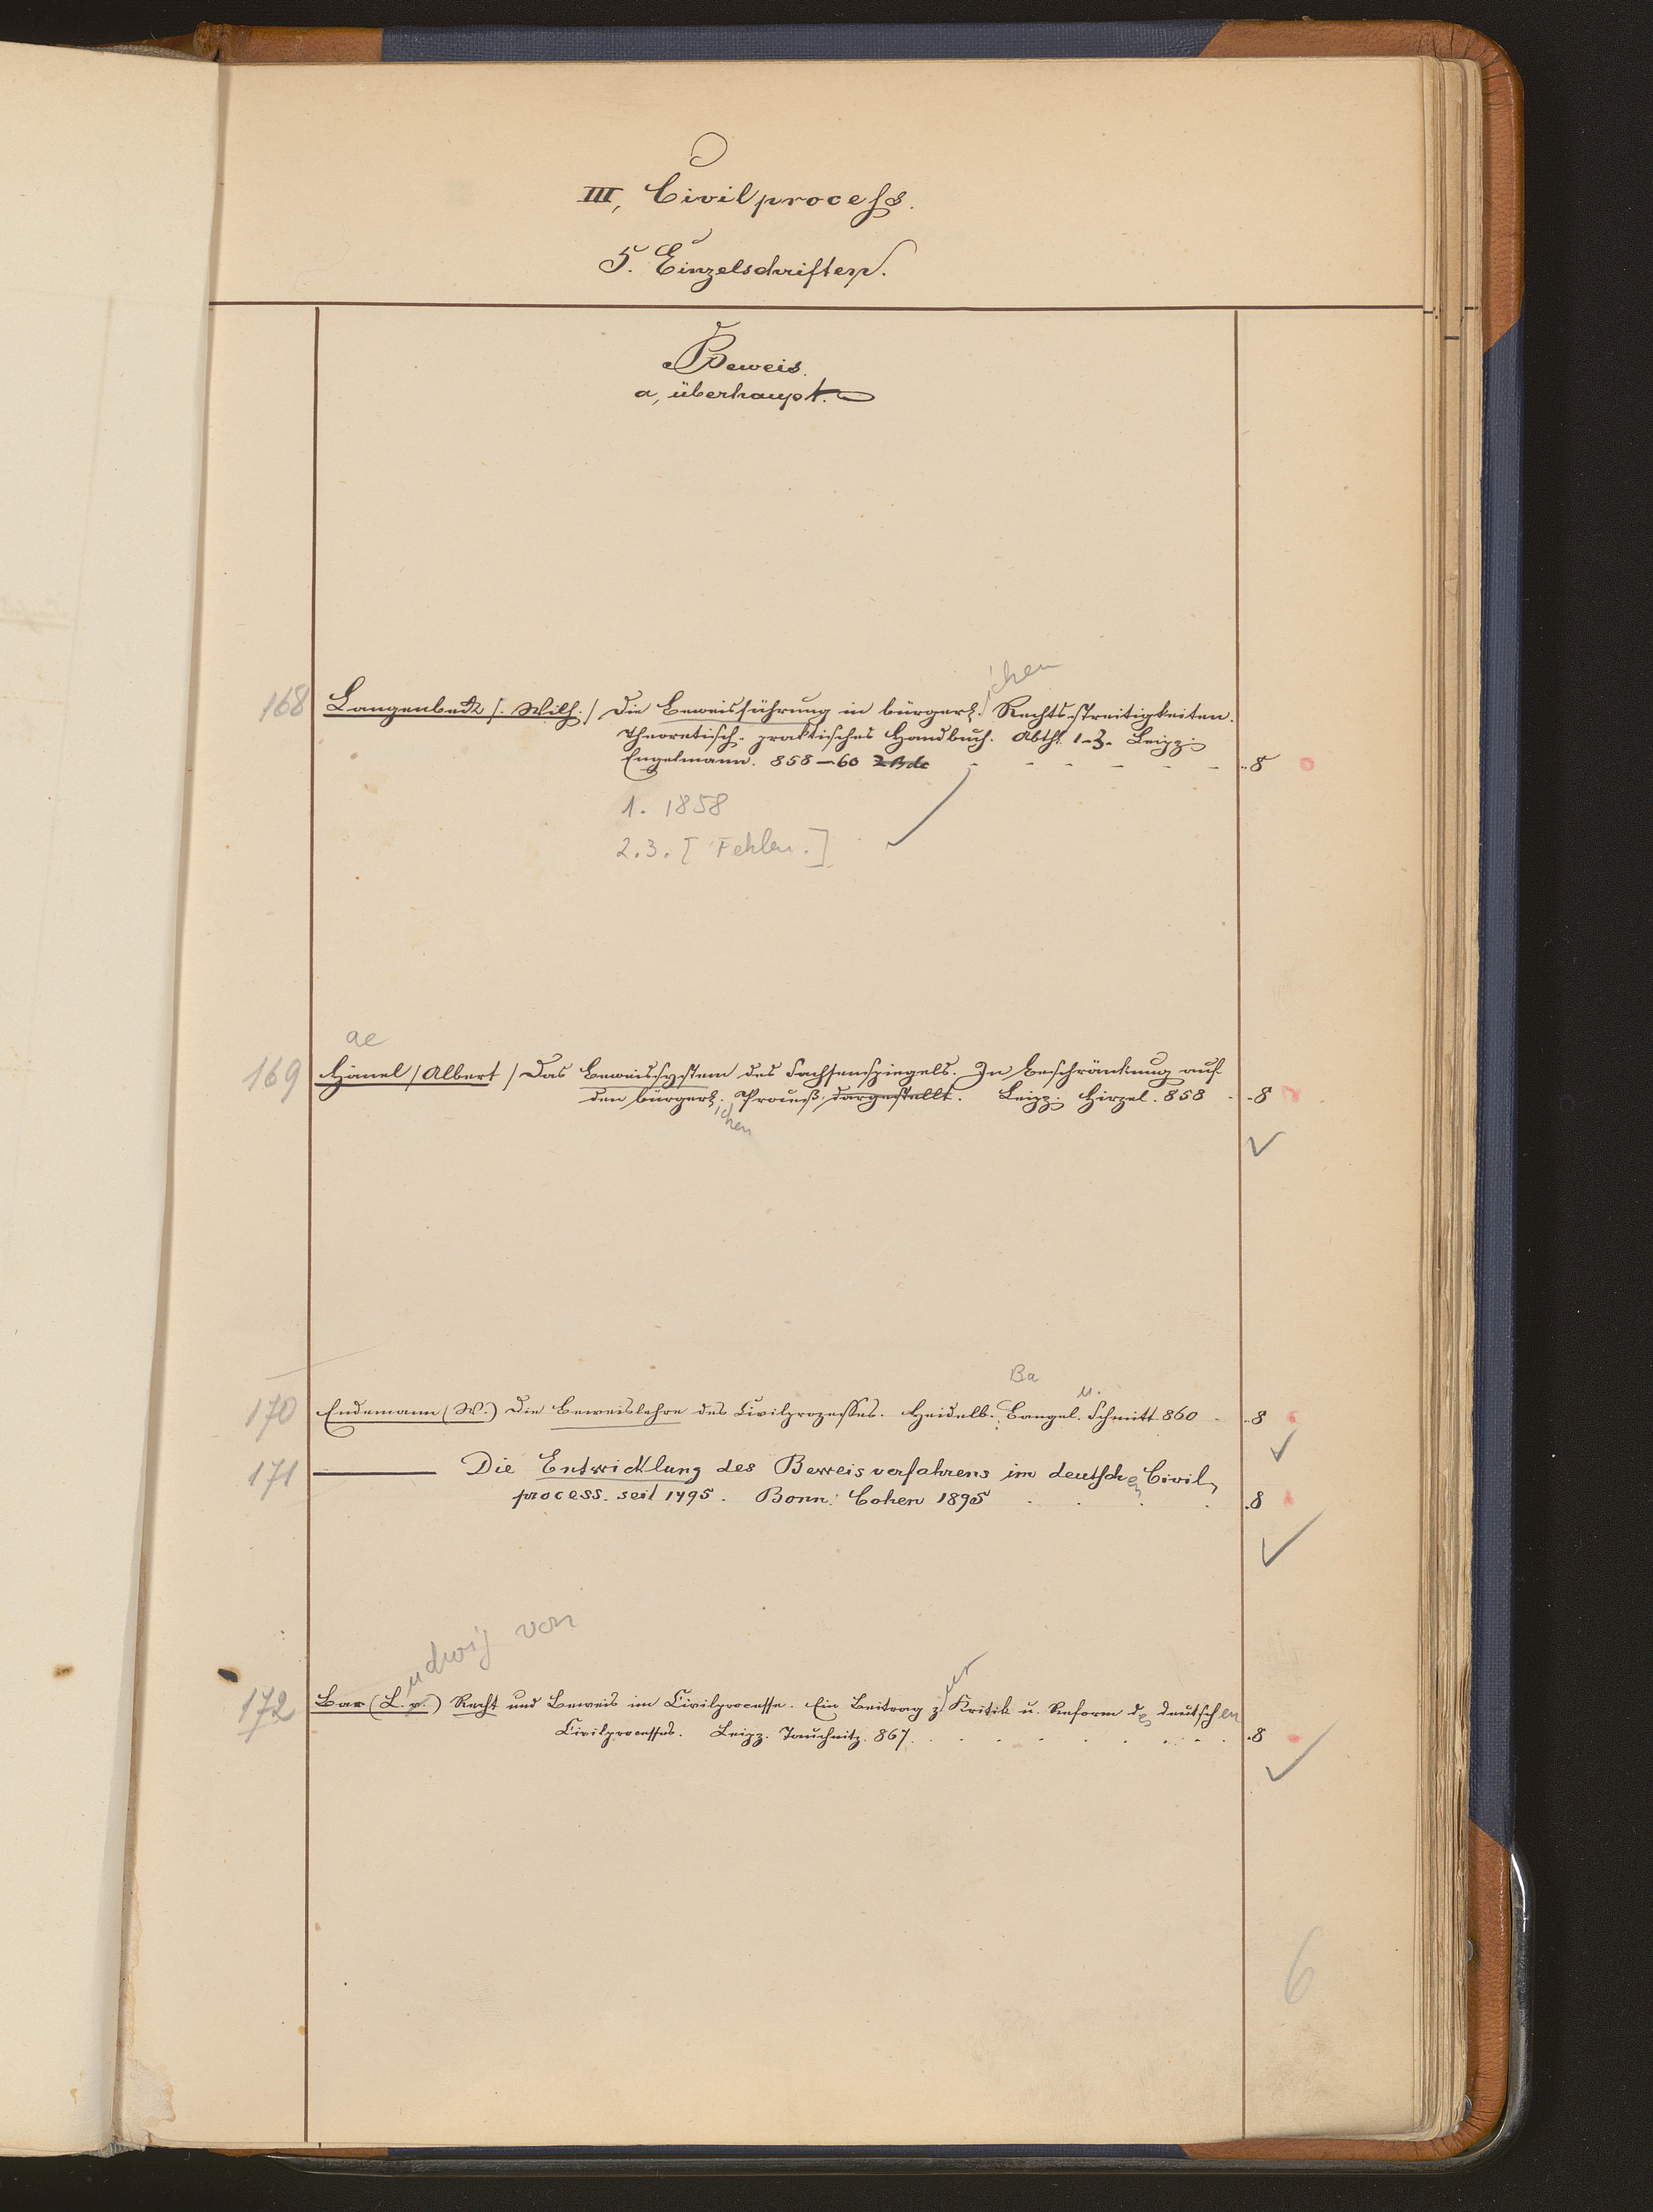 III, Civilprocess.
5. Einzelschriften.
Beweis.
a, überhaupt.
ichen
168 Langenbeck /. Wilh. / Die Beweisführung in bürgerl. Rechts-streitigkeiten.
Theoretisch-praktisches Handbuch. Abth. 1-3. Leipz.
Engelmann. 858-60 2 Bde 8
1. 1858
2.3. [Fehlen.]
ae
169 Hänel / Albert / Das Beweissystem des Sachsenspiegels. In Beschränkung auf
den bürgerl. Proceß dargestellt. Leipz. Hirzel. 858 8
ichen
Ba u.
170 Endemann (W.) Die Beweislehre des Civilprozesses. Heidelb. Bangel. Schmitt. 860 8
171 ——— Die Entwicklung des Beweisverfahrens im deutschen Civil
process. seit 1495. Bonn. Cohen 1895 8
udwig von
ur
172 Bar (L. v.) Recht und Beweis im Civilprocesse. Ein Beitrag z. Kritik u. Reform des deutschen
Civilprocesses. Leipz. Tauchnitz. 867. 8
6